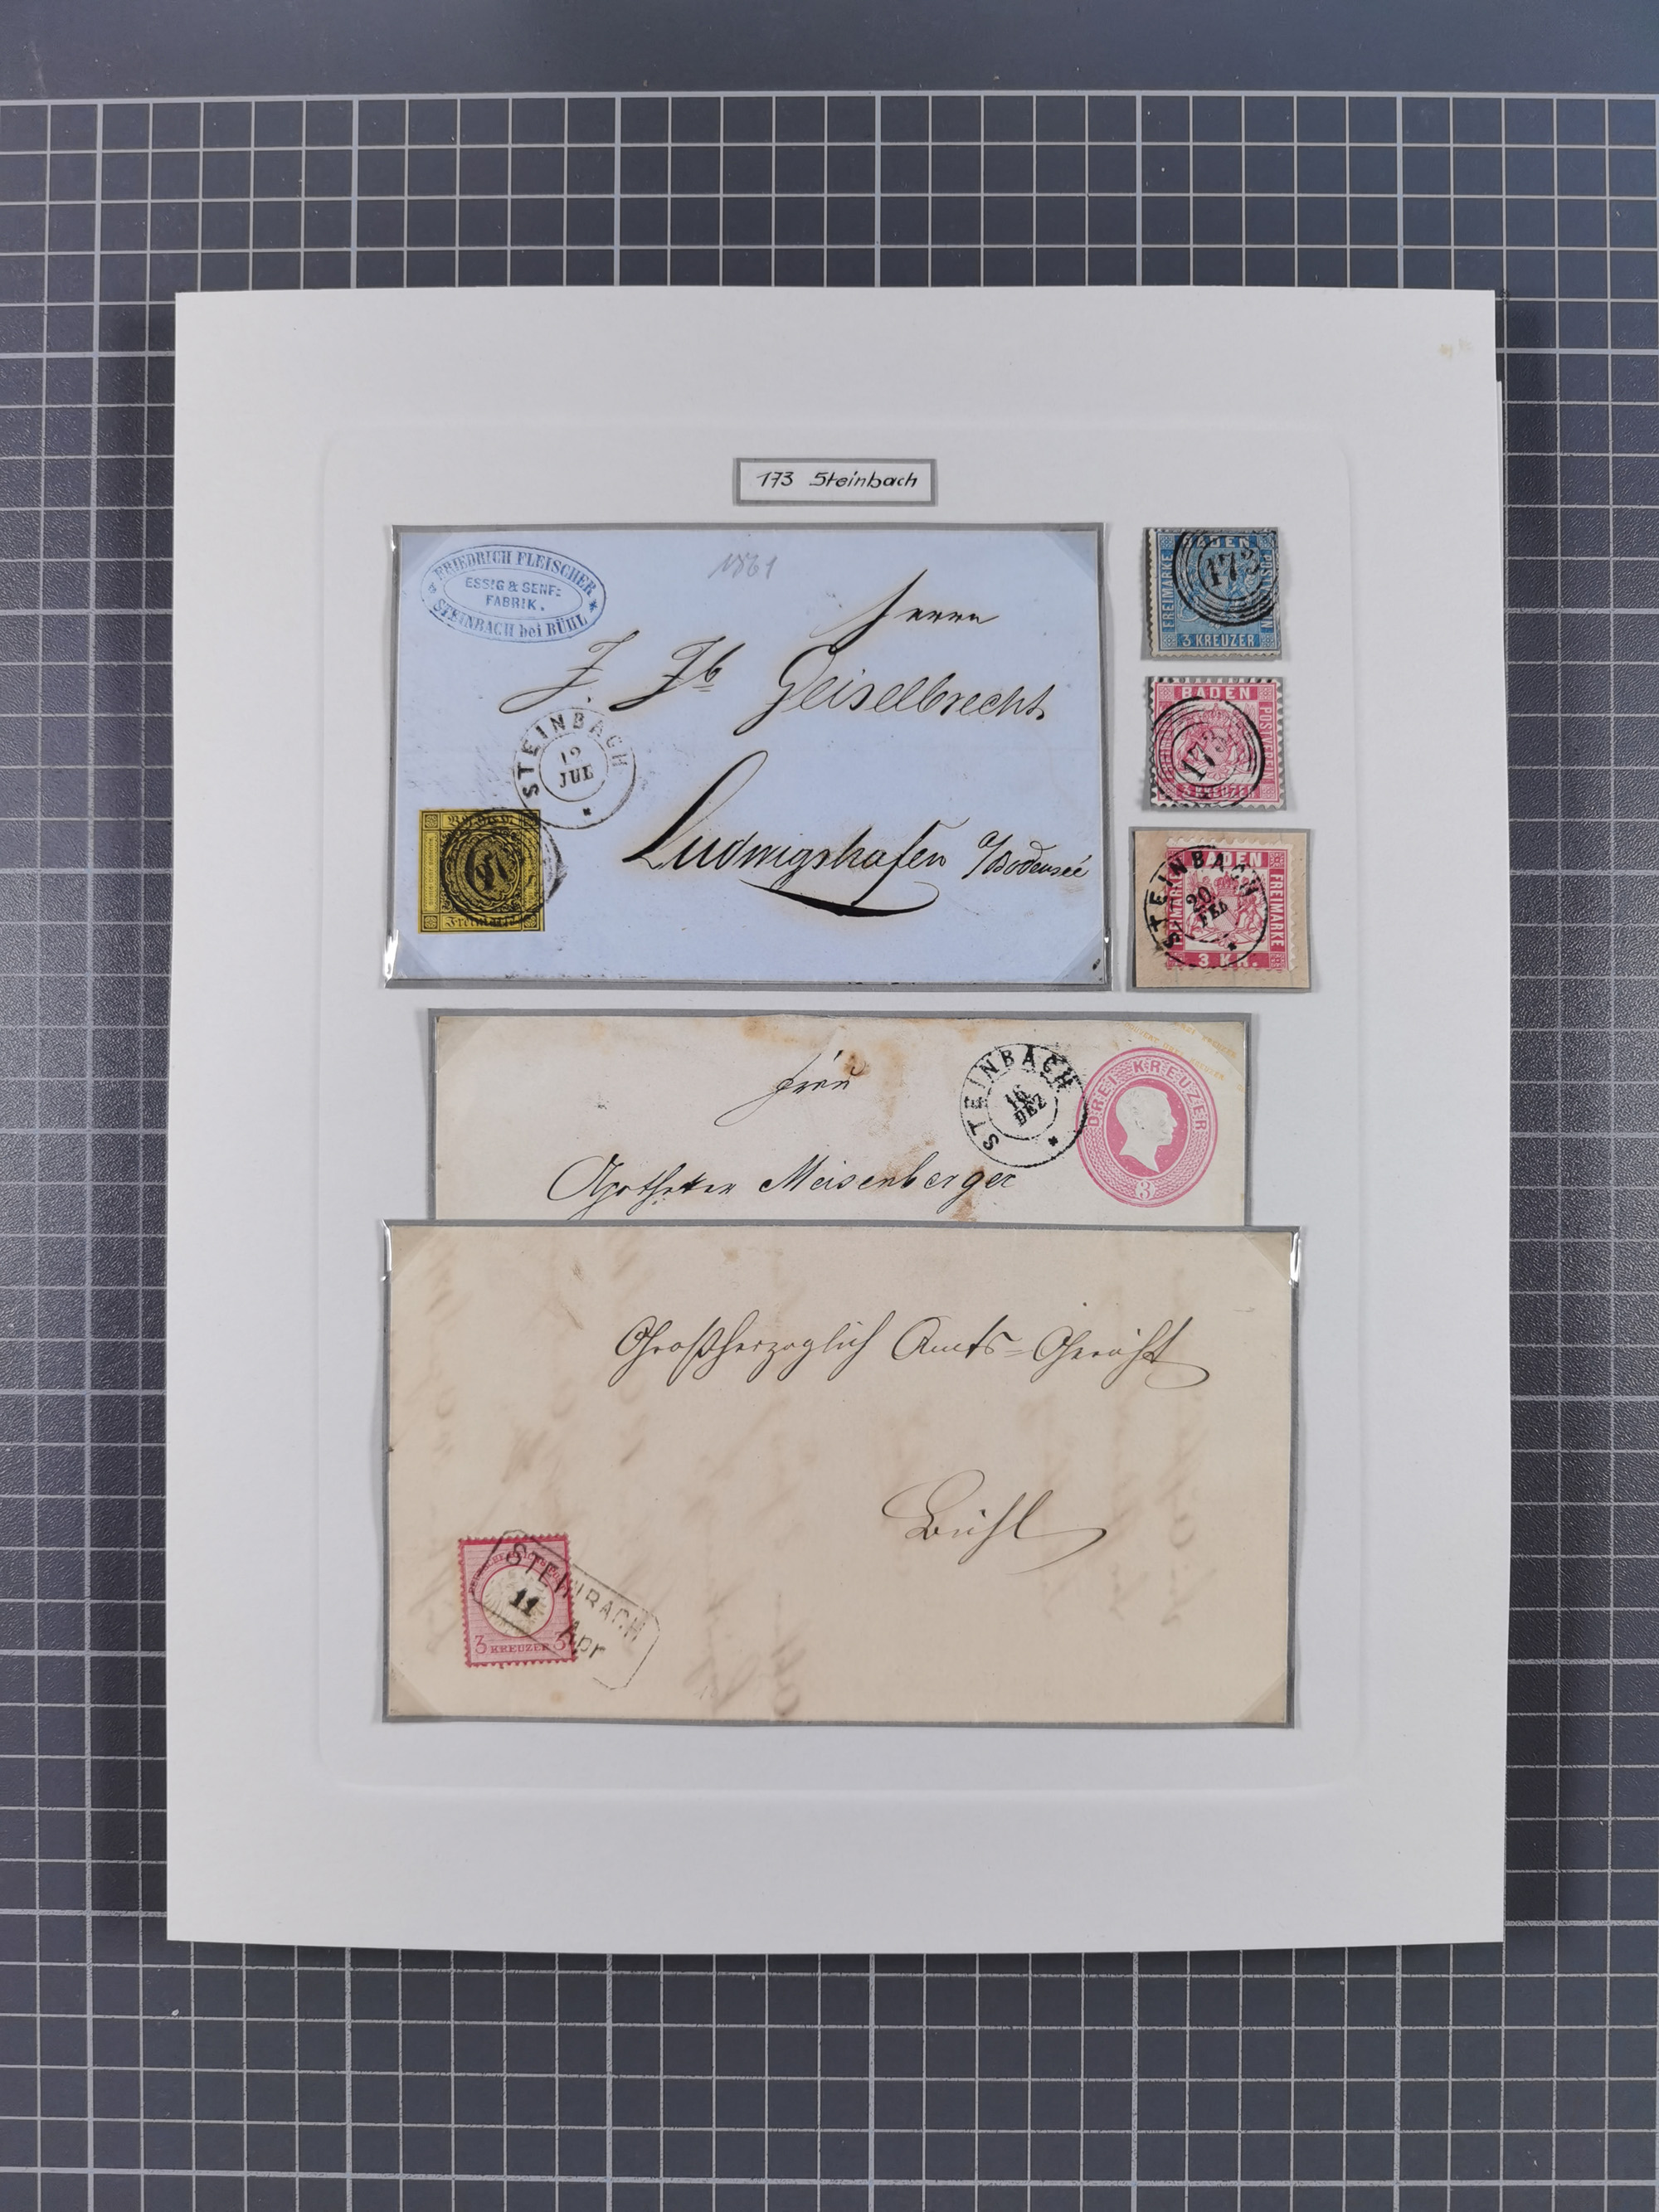 173 Steinbach
FRIEDRICH FLEISCHER
ESSIG & SENF=
FABRIK.
STEINBACH bei BÜHL
1861
Herrn
J. Jb Geiselbrecht
STEINBACH
12
JUL
Ludwigshafen a/Bodensee
Freimarke
BADEN
FREIMARKE
173
3 KREUZER
BADEN
POSTVEREIN
173
3 KREUZER
BADEN
FREIMARKE
STEINBACH
20
FEB
3 KR.
Frau
STEINBACH
16
DEZ
DREI KREUZER
3
Apotheker Meisenberger
Großherzoglich Amts=Gericht
Bühl
STEINBACH
11 Apr
3 KREUZER 3